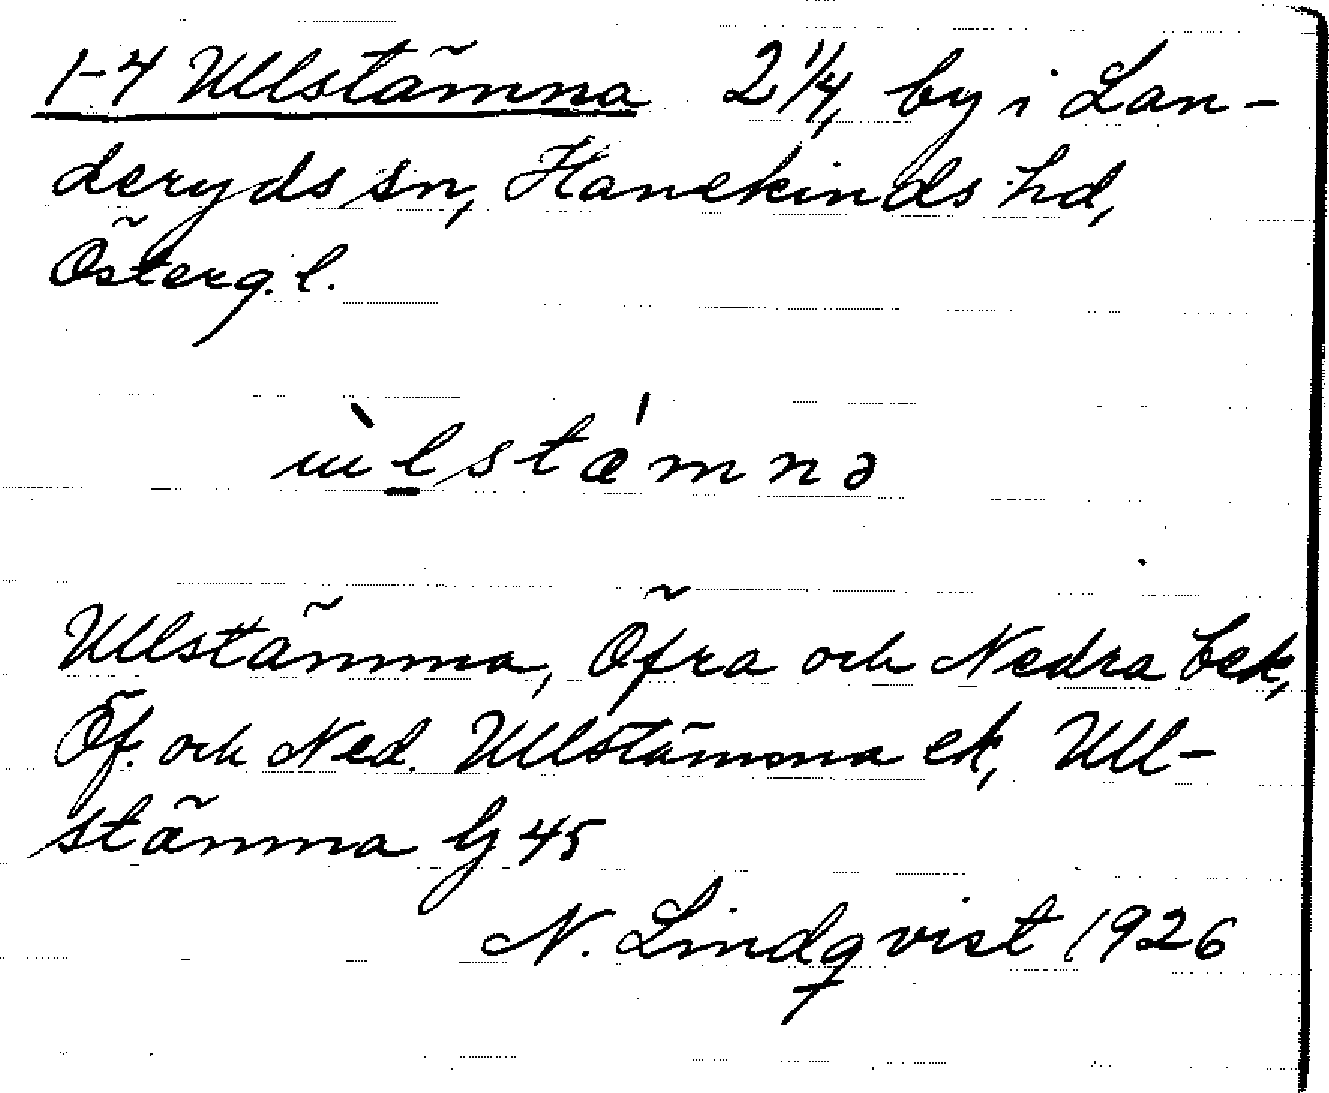 1-4 Ullstämna 2 1/4, by i Lan-
deryds sn, Hanekinds hd,
Österg. l.
ùlstæ´mnə
Ullstämma, Öfra och Nedra bek,
Öf. och Ned. Ullstämma ek, Ull-
stämma Gj 45
N. Lindqvist 1926